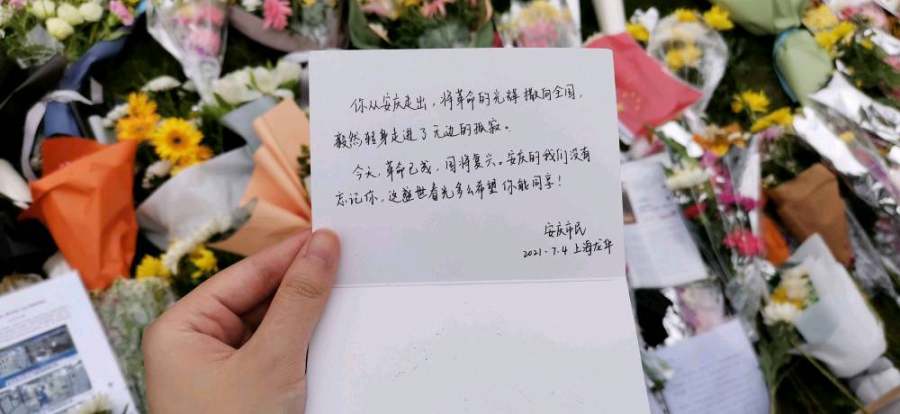 你从安庆走出，将革命的光辉撒向全国，
毅然转身走进了无边的孤寂。
今天，革命已成，国将复兴。安庆的我们没有
忘记你，这盛世春光多么希望你能同享！
安庆市民
2021.7.4 上海龙华